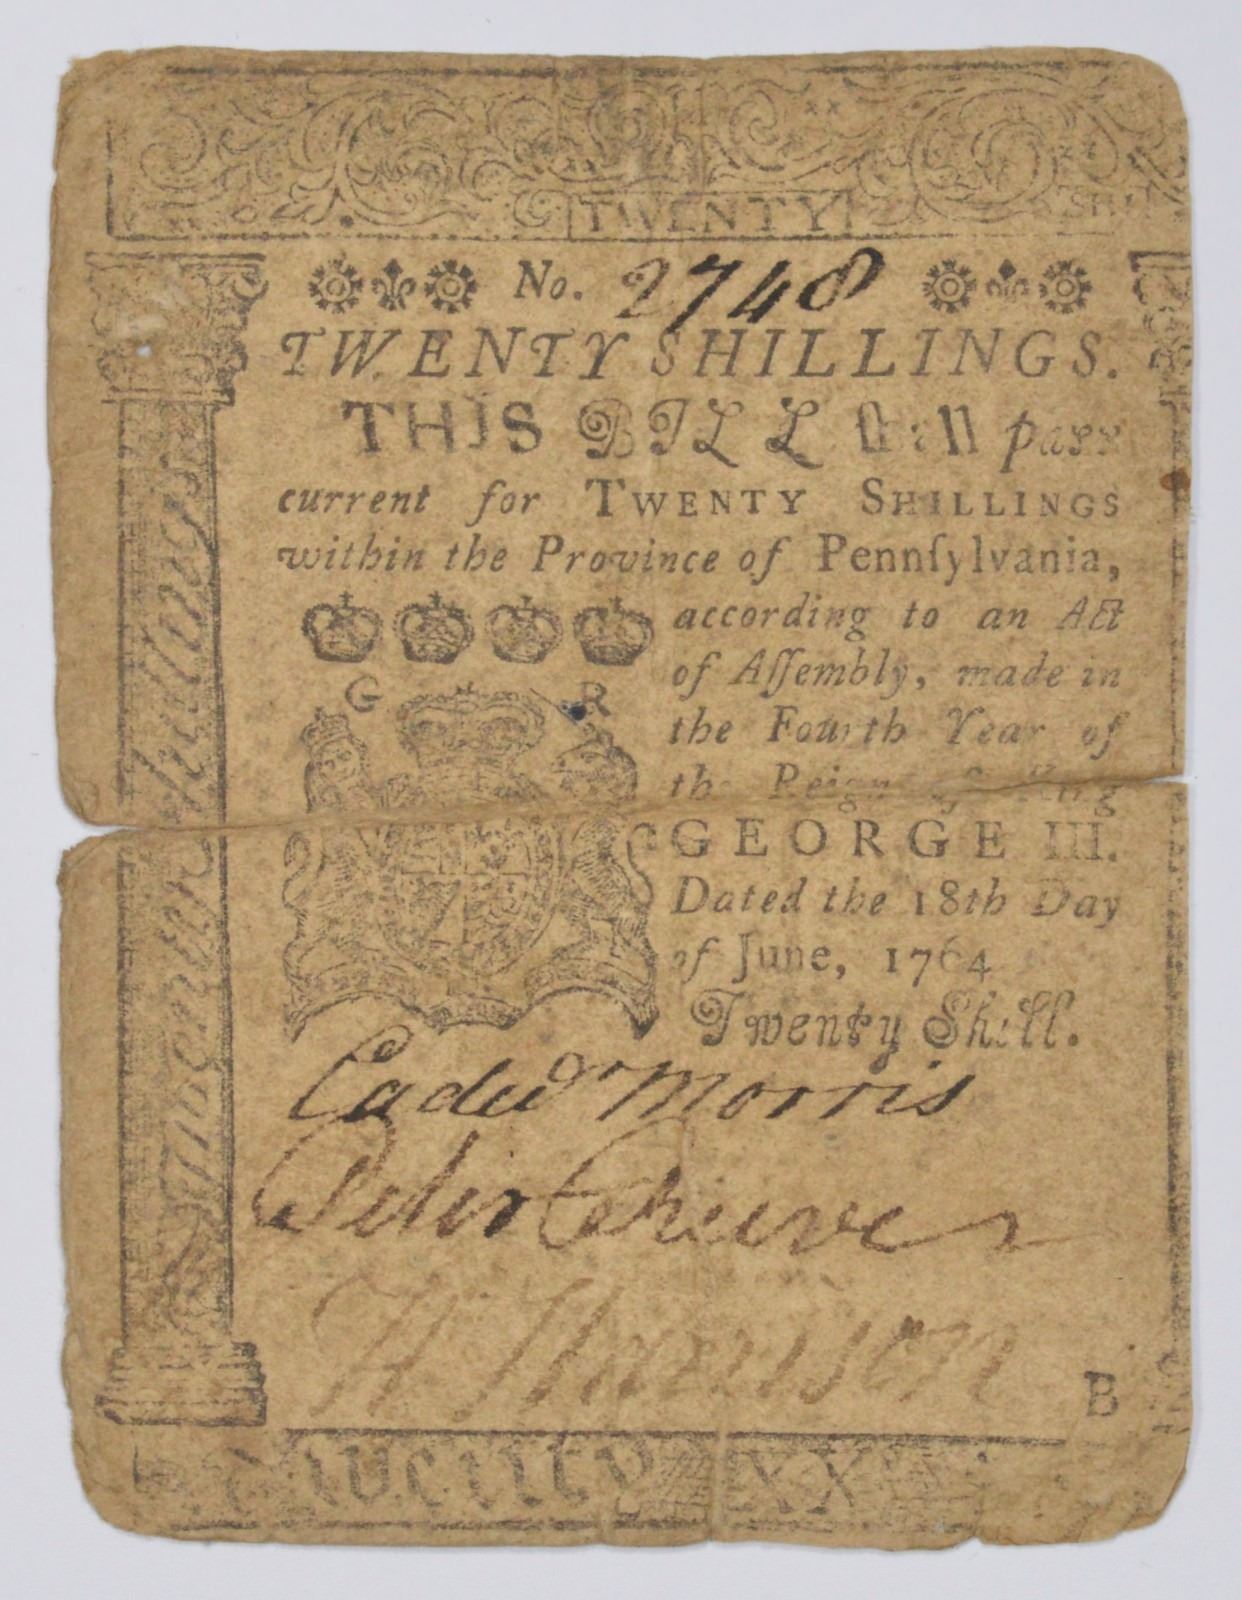 TWENTY
No. 2748
TWENTY SHILLINGS.
THIS BILL ſhall pass
current for TWENTY SHILLINGS
within the Province of Pennſylvania,
according to an Act
of Aſſembly, made in
the Fourth Year of
the Reign of King
GEORGE III.
Dated the 18th Day
of June, 1764
Twenty Shill.
G R
Cadwr Morris
Peter Reeve
H Harrison
B
Twenty XX
Twenty Shillings